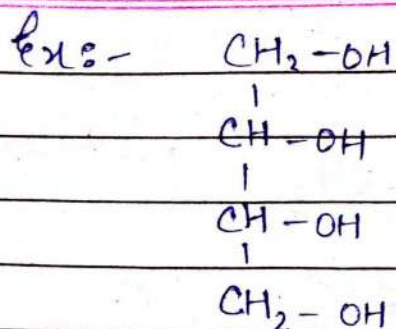 Ex:- CH₂-OH
|
CH-OH
|
CH-OH
|
CH₂-OH